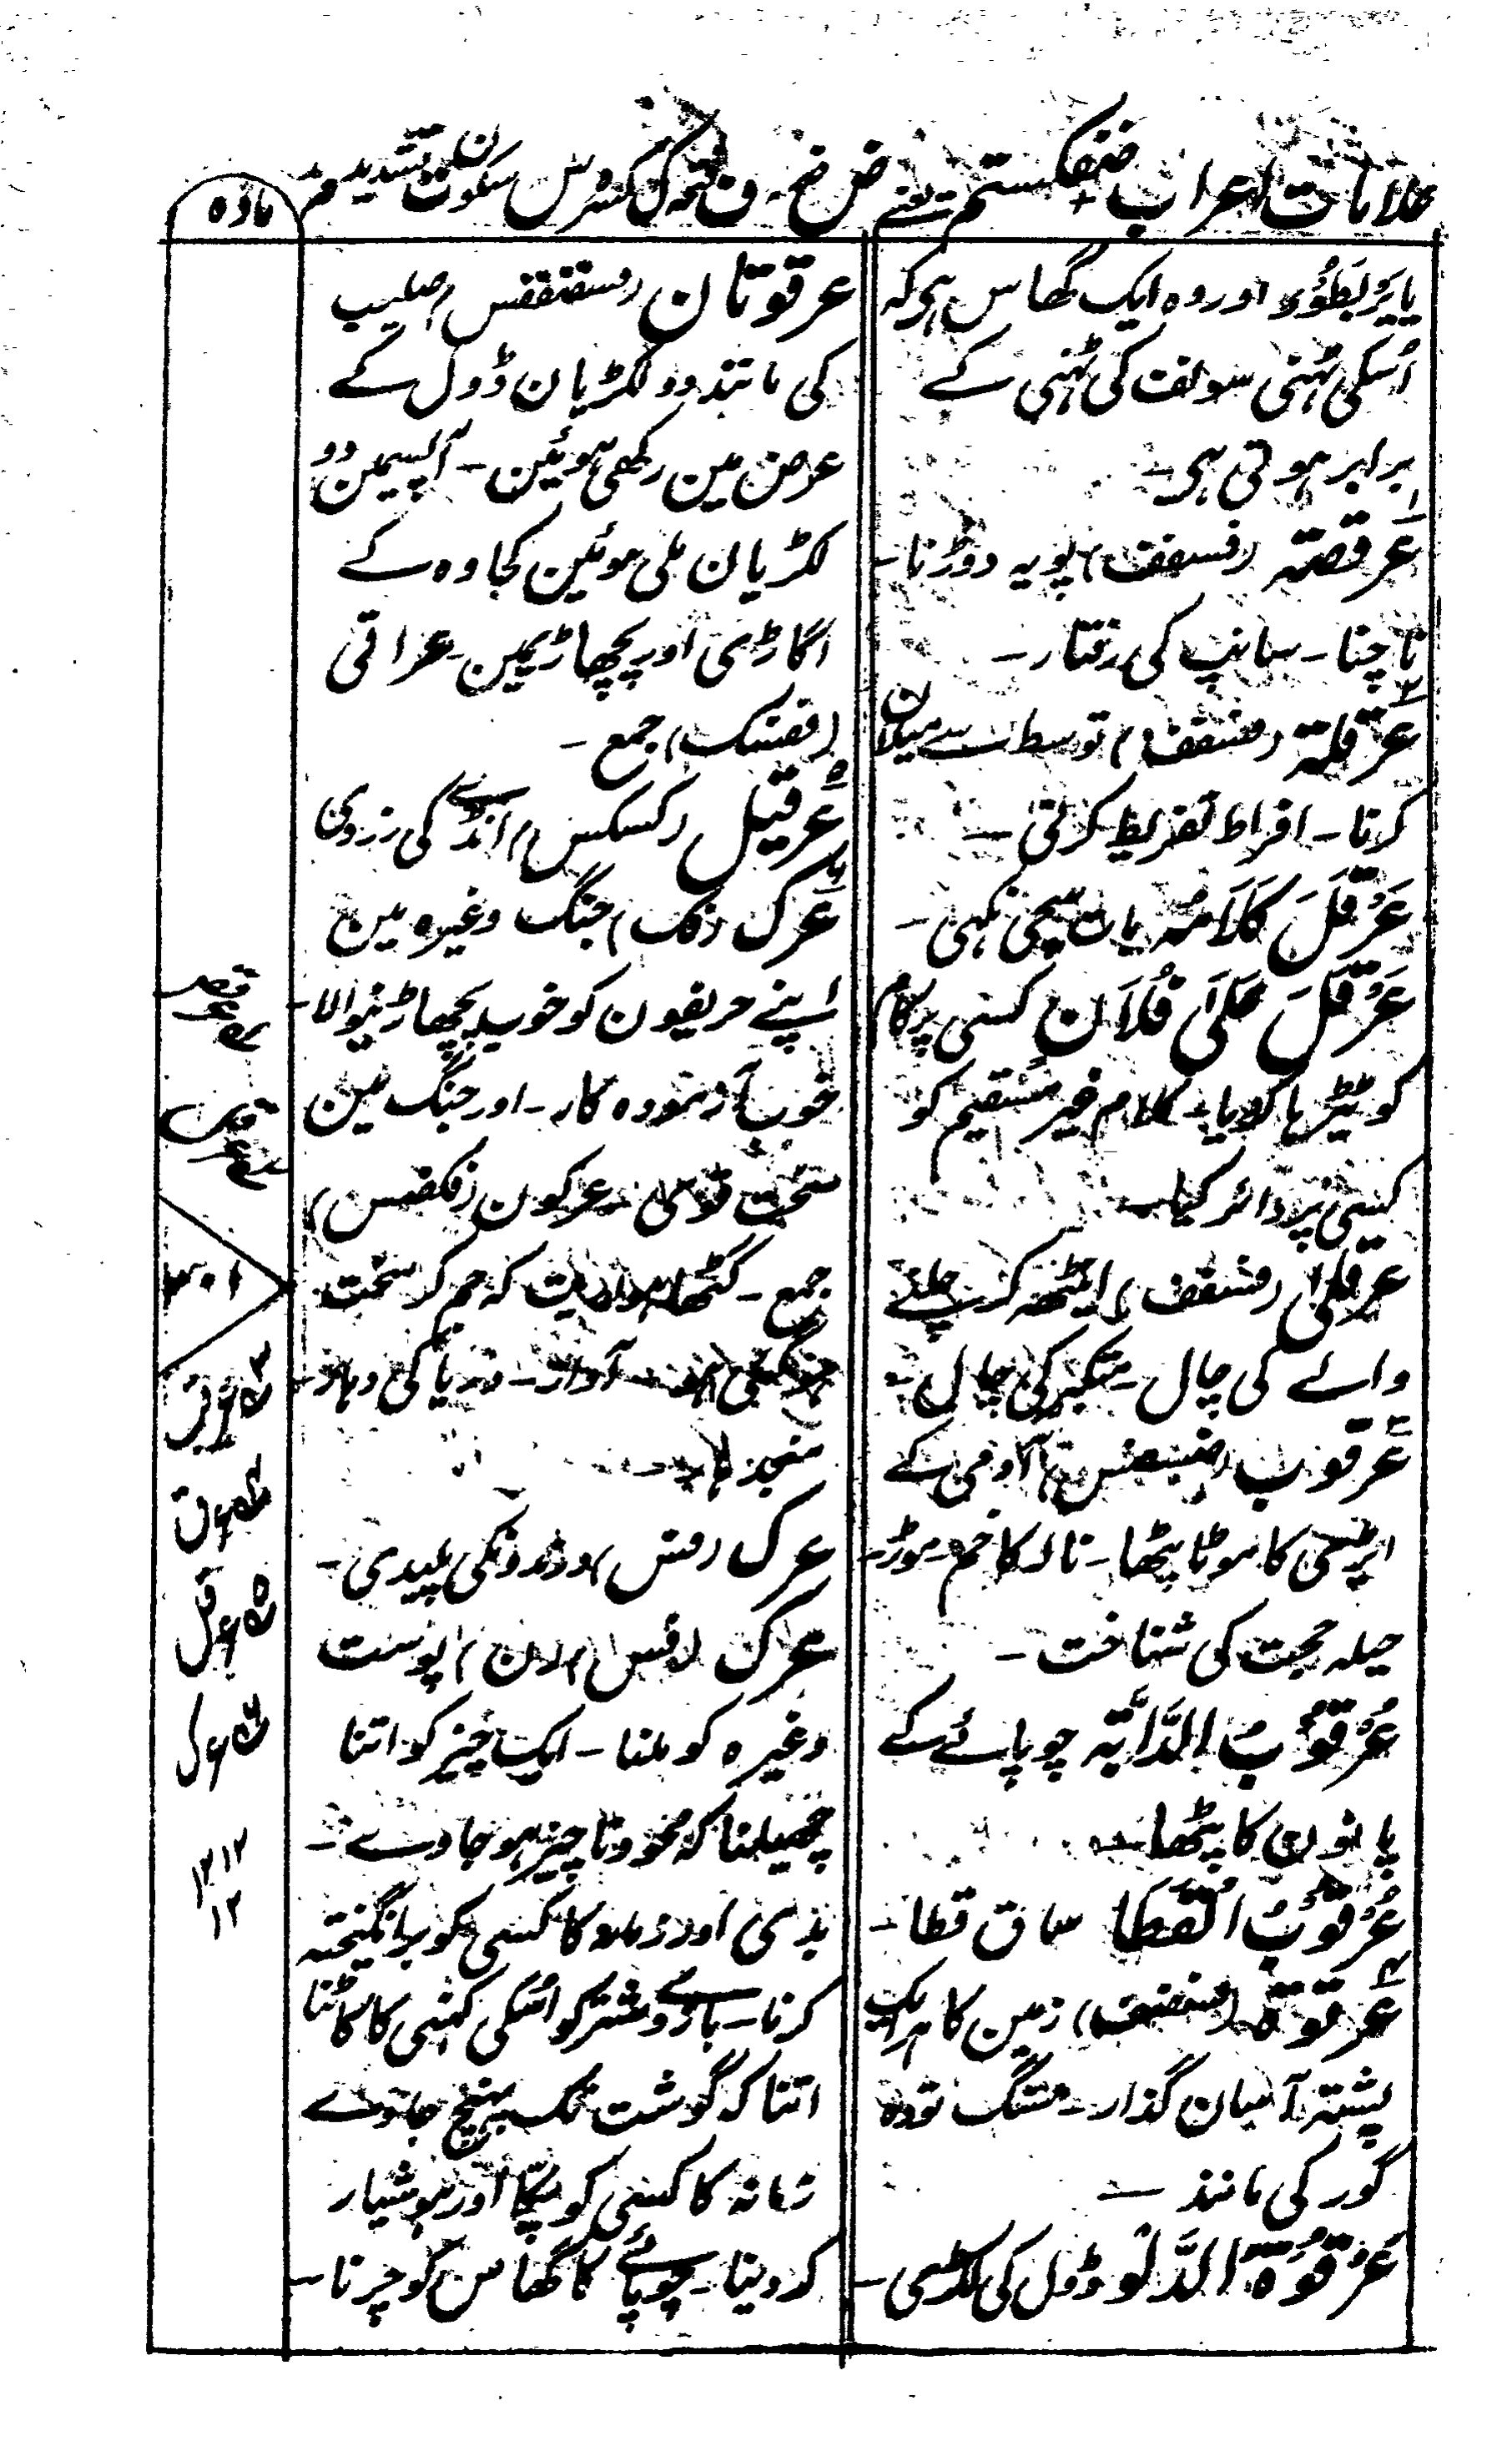 علامات اعراب ضفکستم یعنے ض ضمہ ف فتحہ ک کسرہ س سکون ت تشدید م مد
مادہ
یا یَرْبَطُوْرہ اور وہ ایک گھاس ہی کہ
اُسکی ٹہنی سونف کی ٹہنی کے
برابر ہوتی ہی۔
عَرقصۃ (فسففت) پویہ دوڑنا۔
ناچنا۔ سانپ کی رفتار۔
عَرقلۃ (فسففف) توسط سے میلان
کرنا۔ افراط تفریط کرنی۔
عَرْقَلَ کَلَامَہٗ بات سچی نکہی۔
عَرْقَلَ عَلَیٰ فُلَان کسی پر کام
کو ٹیڑہا کر دیا۔ کلام غیر مستقیم کو
کیسی پر دائر کیا۔
عرقلیٰ (فسففف) اینٹھہ کر چلنے
والے کی چال۔ متکبر کی چال۔
عُرقوب (ضسضس) آدمی کے
ایڑھی کا موٹا پٹھا۔ نالہ کا خم۔ موڑ۔
حیلہ حجت کی شناخت۔
عُرْقُوْبُ الدَّابَّۃ چوپائے کے
پانوں کا پٹھا۔
عُرْقُوْبُ الْقَطَا ساق قطا۔
عَرقوۃ (فسضف) زمین کا ہر ایک
پشتہ آسان گذار۔ تنگ تودہ
گور کی مانند۔
عَرْقُوَۃُ الدَّلْو ڈول کی لکڑی۔
عرقوتان (فسضففس) صلیب
کی مانند دو لکڑیان ڈول کے
عرض مین رکھی ہوئین۔ آپسمین دو
لکڑیان ملی ہوئین کجاوہ کے
اگاڑی اور پچھاڑیمین۔ عراقی
(ففسک) جمع۔
عِرقیل (کسکس) انڈے کی زردی
عَرک (فک) جنگ وغیرہ مین
اپنے حریفون کو خوب پچھاڑنیوالا۔
خوب آزمودہ کار۔ اور جنگ مین
سخت قوی۔ عرکون (فکضس)
جمع۔ کٹھا ہوا ریت کہ جم کر سخت
آواز۔ دریا کی دہاڑ۔
عرک (فس) درندونکی پلیدی۔
عرک (فس) (ن) پوست
وغیرہ کو ملنا۔ ایک چیز کو اتنا
چھیلنا کہ محو و ناچیز ہو جاوے۔
بدی اور کا کسی کو برانگیختہ
کرنا۔ بازوے شتر کو اُسکی کہنی کا کاٹنا
اتنا کہ گوشت تک پہنچ جاوے
زمانہ کا کسی کو پکّا اور ہوشیار
کر دینا۔ چوپائے کا گھاس کو چرنا۔
۱۲ ۱۲
۱۲